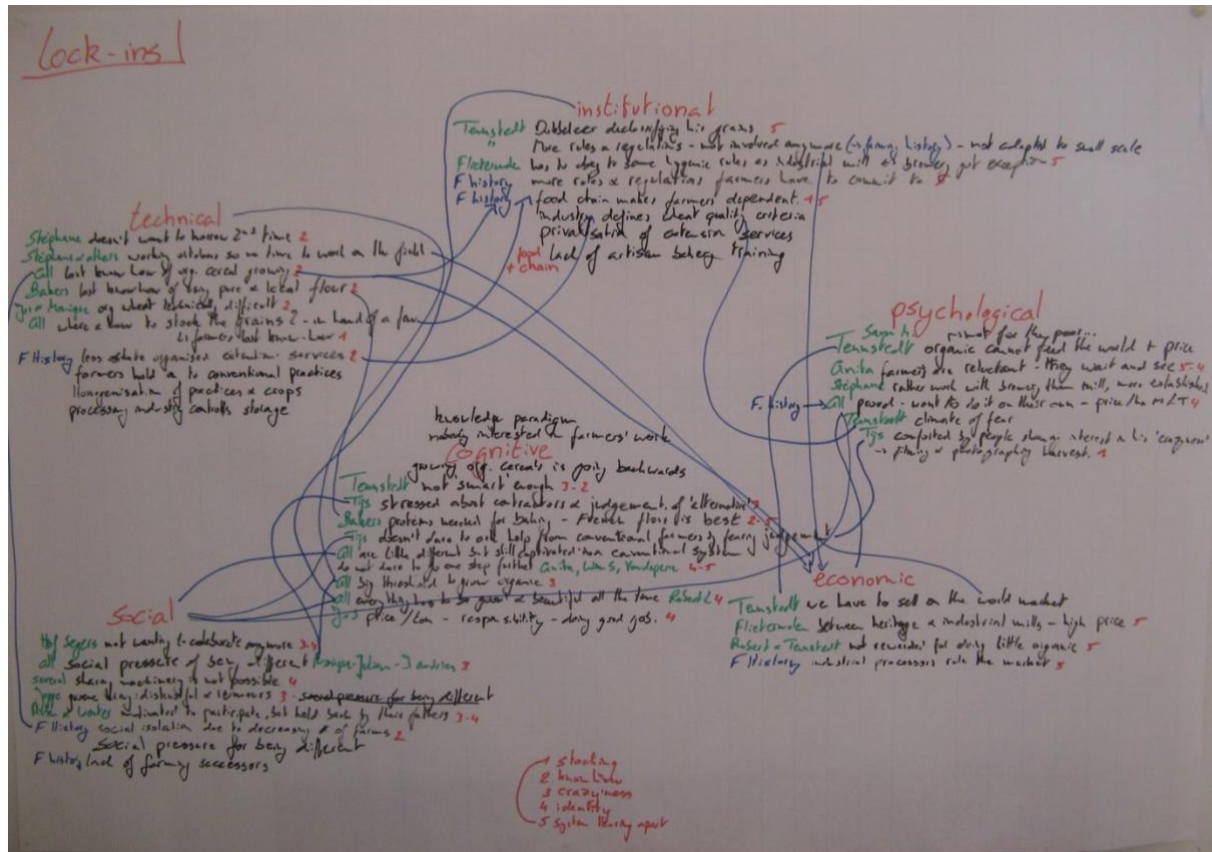 Lock-ins
institutional
Teunstedt Dubbeleer declassifying his grains 5
" More rules & regulations - not involved anymore (→ farming history) - not adapted to small scale
has to obey to some hygienic rules as industrial mill brewery got exceptions 5
F history more rules & regulations farmers have to commit to 5
F history food chain makes farmers dependent. 1 5
industry defines wheat quality criteria
privatisation of extension services
food + chain lack of artisan bakery training
technical
Stéphane doesn't want to borrow 2nd time 2
Stéphane & others working outdoors so no time to work on the field
All lost know how of org. cereal growing 2
Bakers lost know how of very pure & local flour 2
Jos & Monique org wheat technically difficult 2
All where & how to stock the grains? - in hand of a few
↳ farmers lost know-how 1
F History less estate organised extention services 2
farmers hold on to conventional practices
Homogenisation of practices & crops
processing industry controlls storage
psychological
is not for the poor...
Teunstedt organic cannot feed the world + price
Anita farmers are reluctant - they wait and see 5-4
Stéphane rather work with brewery than mill, more established
F. history → All proud - want to do it on their own - price/ha 4
Teunstedt climate of fear
Tijs comforted by people showing interest in his 'crazyness'
→ filming & photography harvest. 1
knowledge paradigm
nobody interested in farmers' work
Cognitive
growing org. cereals is going backwards
Teunstedt not 'smart' enough 3-2
Tijs stressed about contractors & judgement of 'alternative' 3
Bakers proteins needed for baking - French flour is best 2-5
Tijs doesn't dare to ask help from conventional farmers by fearing judgement
All are little different but still captivated in a conventional system
do not dare to go one step further Anita, 4-5
All big threshold to grow organic 3
All everything has to be great & beautiful all the time Robert 4
Jos price/ - responsibility - doing good job. 4
economic
Teunstedt we have to sell on the world market
between heritage & industrial mills - high price 5
Robert & Teunstedt not rewarded for doing little organic 5
F History industrial processors rule the market 5
social
Hof Segers not wanting to colaborate anymore
All social pressure of being different 3
several sharing machinery is not possible 4
distrustful & rumours 3 - social pressure for being different
& Wouter motivated to participate, but held back by their fathers 3-4
F History social isolation due to decreasing # of farms 2
social pressure for being different
F history lack of farming successors
1 stocking
2 know how
3 crazyness
4 identity
5 system tearing apart